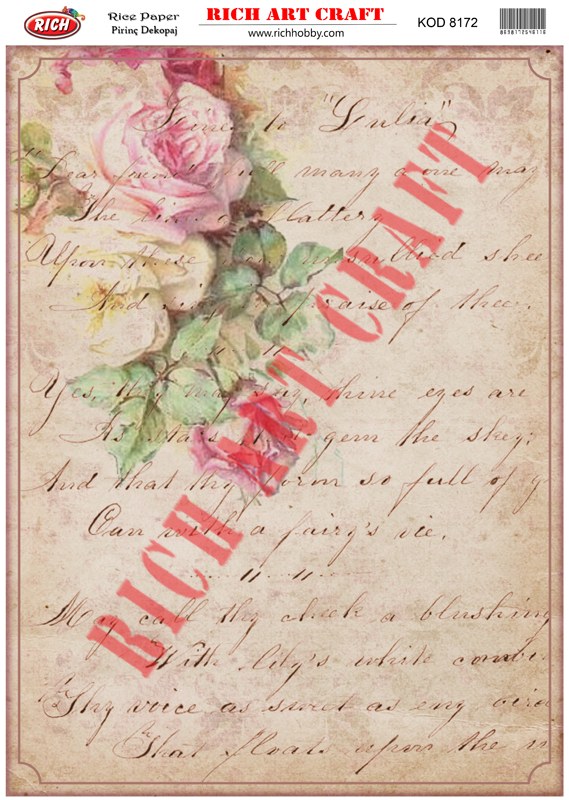 RICH
Rice Paper
Pirinç Dekopaj
RICH ART CRAFT
www.richhobby.com
KOD 8172
to "Julia"
"Dear will many a one may
The of flattery
Upon these unsullied shee
And praise of thee.
Yes, they may say, thine eyes are
As stars that gem the sky;
And that thy form so full of g
Can with a fairy's vie.
May call thy cheek a blushing
With lily's white combi
Thy voice as sweet as any
That floats upon the
RICH ART CRAFT